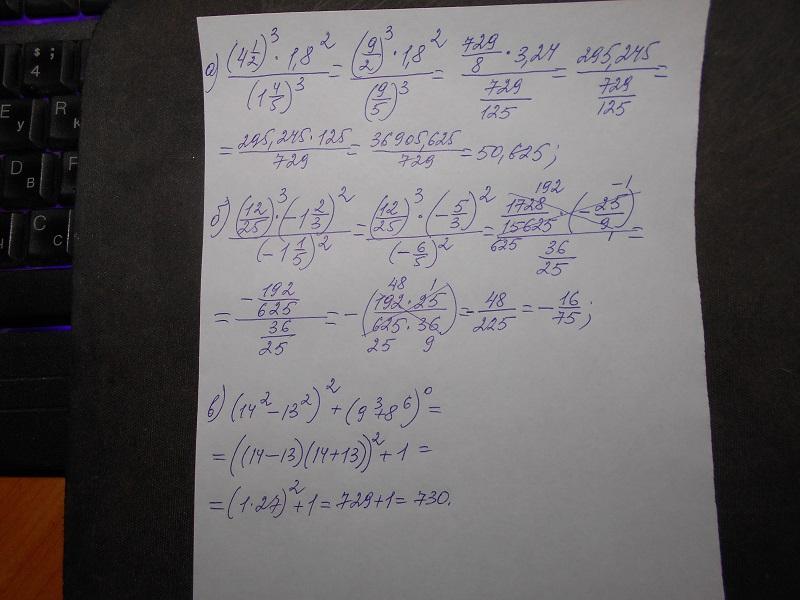 $ ;
4
E
у
R
К
D
В
F
C
С
а) (4 1/2)^3 · 1,8^2 / (1 4/5)^3 = (9/2)^3 · 1,8^2 / (9/5)^3 = 729/8 · 3,24 / 729/125 = 295,245 / 729/125 =
= 295,245 · 125 / 729 = 36905,625 / 729 = 50,625;
б) (12/25)^3 · (-1 2/3)^2 / (-1 1/5)^2 = (12/25)^3 · (-5/3)^2 / (-6/5)^2 = 192 1728 / 15625 625 · (- -1 25 / 9 1) / 36/25 =
= -192/625 / 36/25 = -(48 192 · 1 25 / 625 · 36 25 9) = -48/225 = -16/75;
в) (14^2 - 13^2)^2 + (9^3 + 8^6)^0 =
= ((14-13)(14+13))^2 + 1 =
= (1·27)^2 + 1 = 729 + 1 = 730.